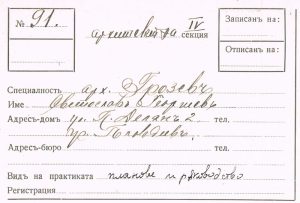 № 91.
архитектурна IV секция
Записанъ на:
Отписанъ на:
Специалность арх. Грозевъ
Име Светославъ Георгиевъ
Адресъ-домъ ул. П. Делянъ 2 тел.
гр. Пловдивъ.
Адресъ-бюро тел.
Видъ на практиката планове и рѫководство
Регистрация